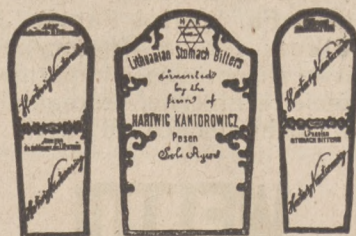 Hartwig Kantorowicz
Hartwig Kantorowicz
H K
Lithuanian Stomach Bitters
invented
by the
firm of
HARTWIG KANTOROWICZ
Posen
Sole Agent
Hartwig Kantorowicz
STOMACH BITTERS
Hartwig Kantorowicz